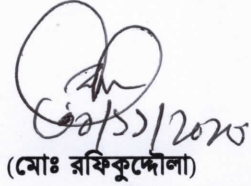 ০২/১১/২০২০
(মোঃ রফিকুদ্দৌলা)